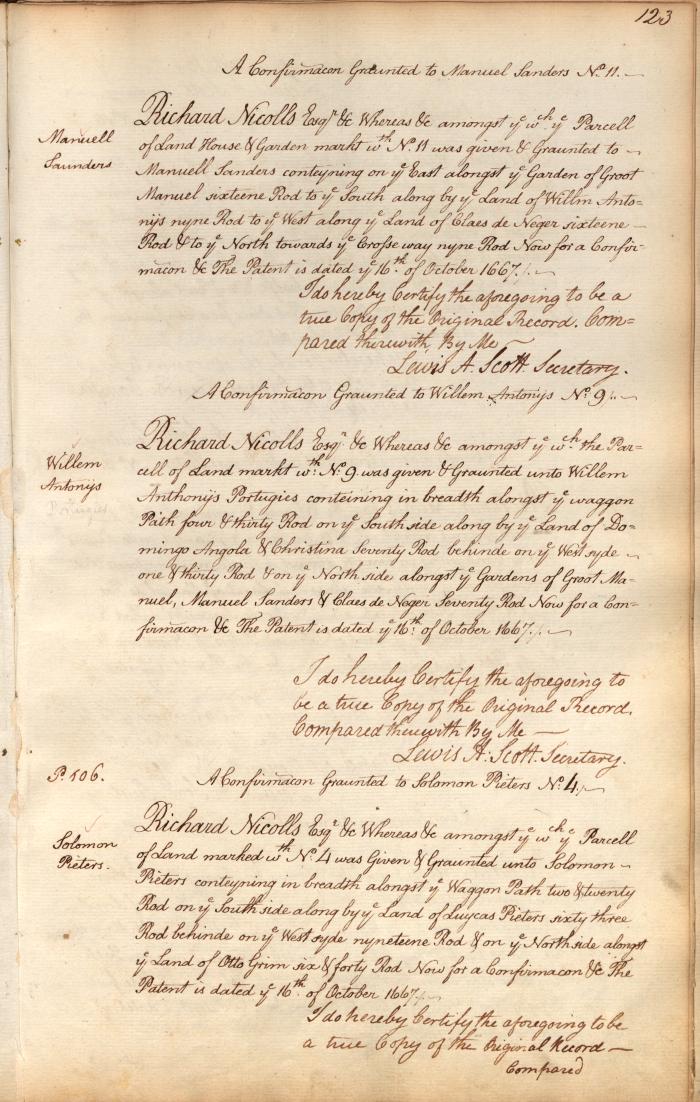 123
A Confirmacon Graunted to Manuel Sanders Nº. 11.
Manuell
Saunders
Richard Nicolls Esqr. &c Whereas &c amongst yᵉ wᶜʰ yᵉ Parcell
of Land House & Garden markt wᵗʰ Nº. 11 was given & Graunted to
Manuell Sanders conteyning on yᵉ East alongst yᵉ Garden of Groot
Manuel sixteene Rod to yᵉ South along by yᵉ Land of Willm Anto=
nijs nyne Rod to yᵉ West along yᵉ Land of Claes de Neger sixteene
Rod & to yᵉ North towards yᵉ Crosse way nyne Rod Now for a Confir=
macon &c The Patent is dated yᵉ 16ᵗʰ. of October 1667./.
I do hereby Certify the aforegoing to be a
true Copy of the Original Record. Com=
pared therewith, By Me
Lewis A. Scott. Secretary.
A Confirmacon Graunted to Willem Antonijs Nº. 9.
Willem
Antonijs
Portugies
Richard Nicolls Esqr. &c Whereas &c amongst yᵉ wᶜʰ the Par=
cell of Land markt wᵗʰ Nº. 9 was given & Graunted unto Willem
Anthonijs Portugies conteining in breadth alongst yᵉ waggon
Path four & thirty Rod on yᵉ South side along by yᵉ Land of Do=
mingo Angola & Christina Seventy Rod behinde on yᵉ West syde
one & thirty Rod & on yᵉ North side alongst yᵉ Gardens of Groot Ma=
nuel, Manuel Sanders & Claes de Neger Seventy Rod Now for a Con=
firmacon &c The Patent is dated yᵉ 16ᵗʰ. of October 1667./.
I do hereby Certify the aforegoing to
be a true Copy of the Original Record,
Compared therewith By Me
Lewis A. Scott. Secretary.
P. 106.
A Confirmacon Graunted to Solomon Pieters Nº. 4./
Solomon
Pieters.
Richard Nicolls Esqr. &c Whereas &c amongst yᵉ wᶜʰ yᵉ Parcell
of Land marked wᵗʰ Nº. 4 was Given & Graunted unto Solomon
Pieters conteyning in breadth alongst yᵉ Waggon Path two & twenty
Rod on yᵉ South side along by yᵉ Land of Luycas Pieters sixty three
Rod behinde on yᵉ West syde nyneteene Rod & on yᵉ North side alongst
yᵉ Land of Otto Grim six & forty Rod Now for a Confirmacon &c The
Patent is dated yᵉ 16ᵗʰ. of October 1667./.
I do hereby Certify the aforegoing to be
a true Copy of the Original Record
Compared